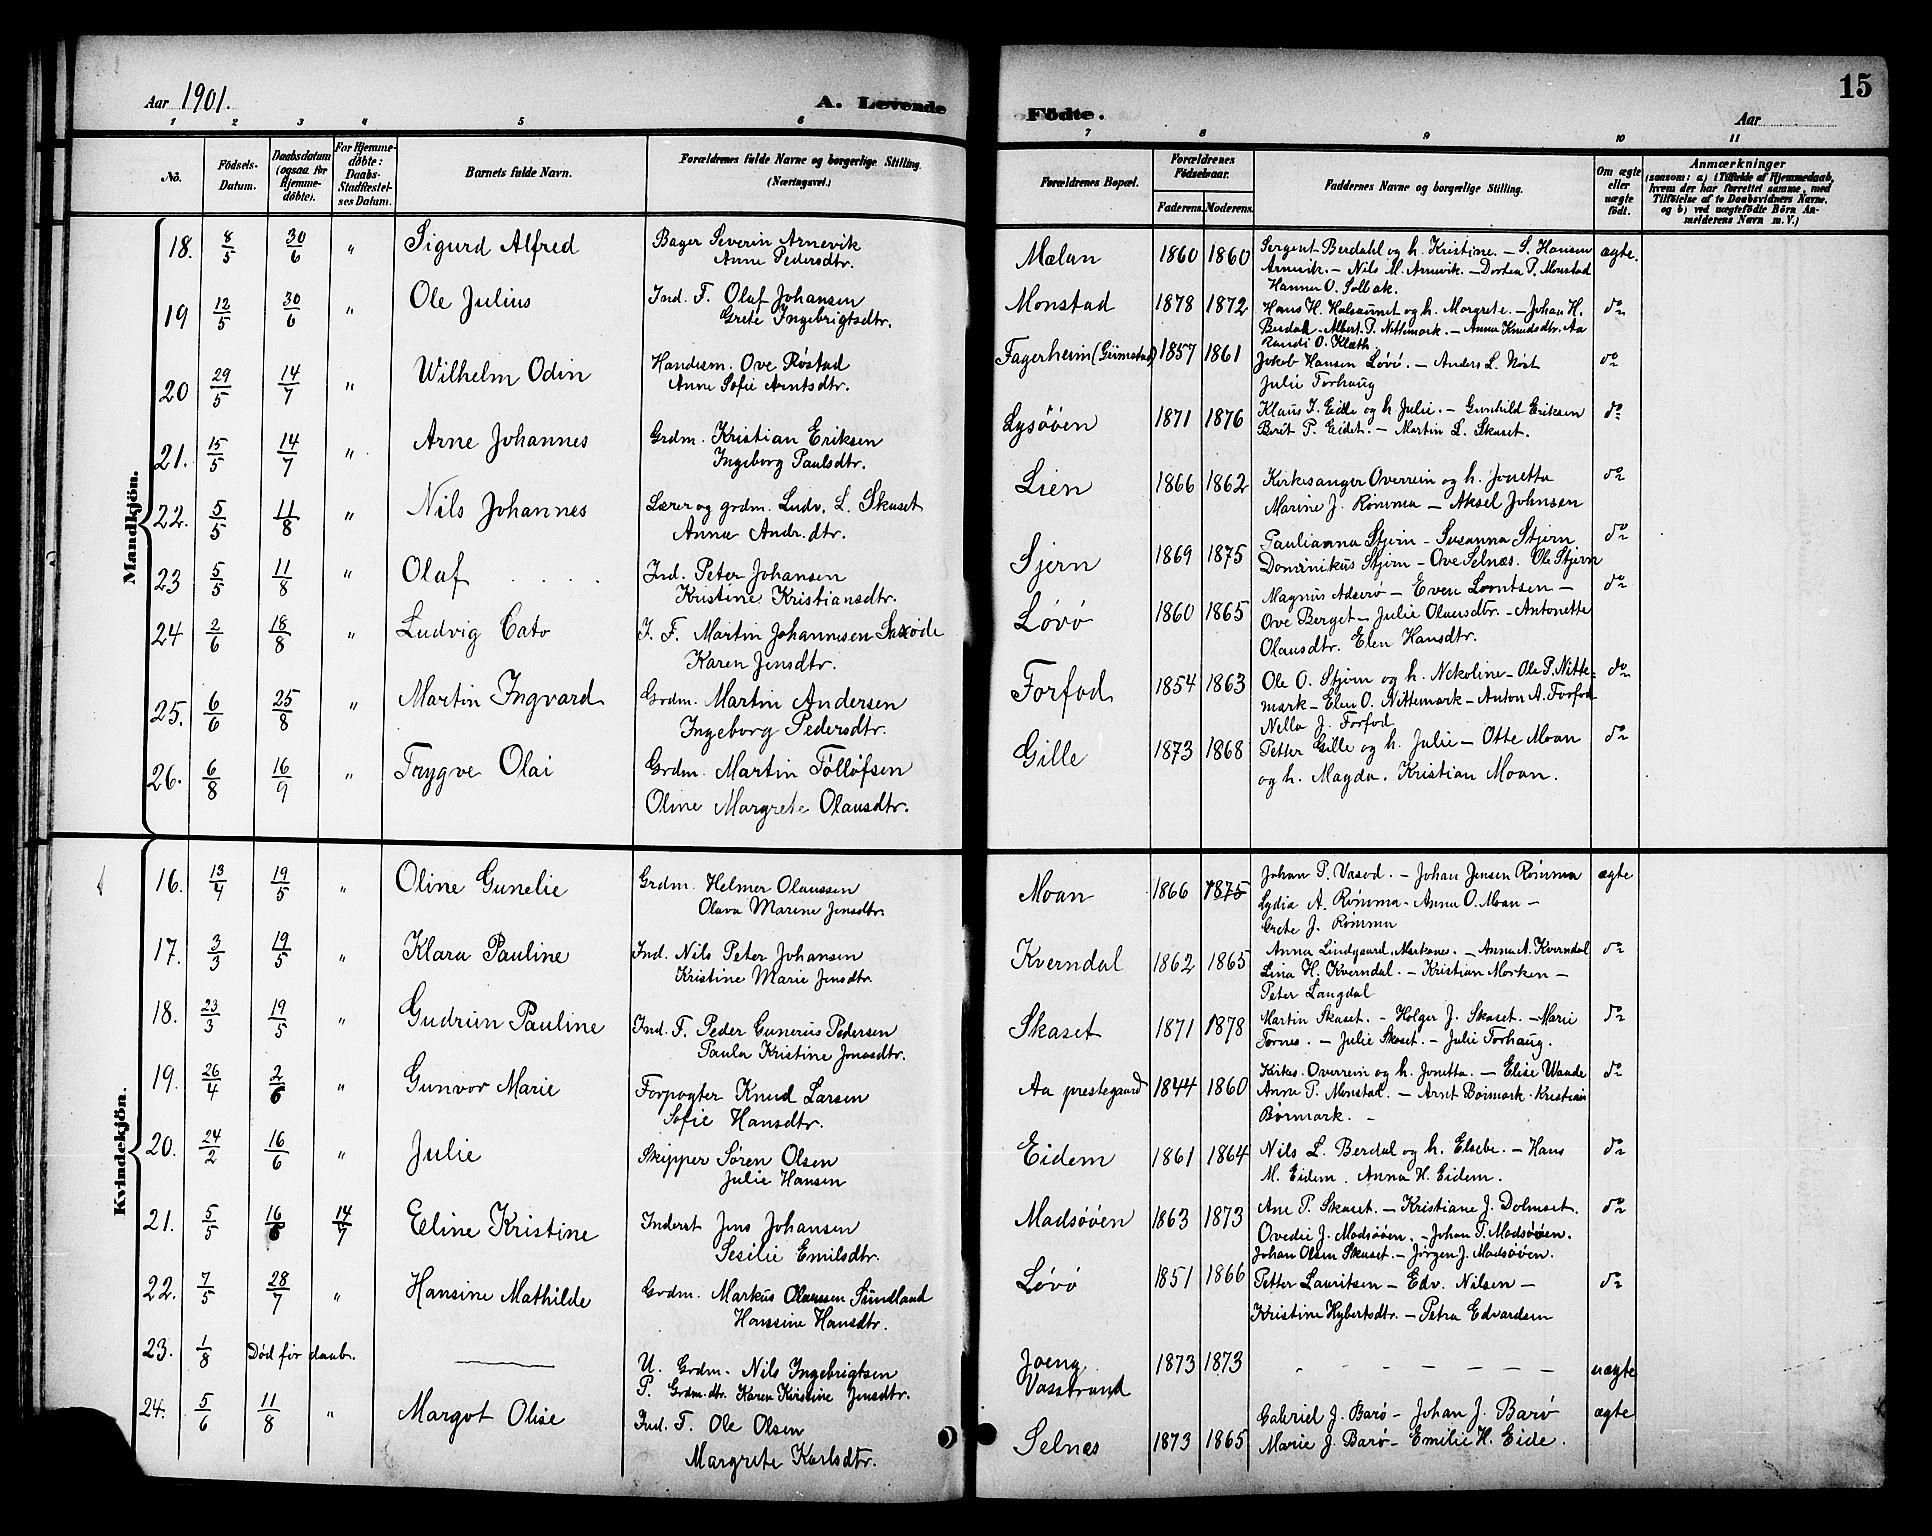 Aar 1901. A. Levende Födte. Aar 15
1 2 3 4 5 6 7 8 9 10 11
No. Födsels-Datum. Daabsdatum (ogsaa for Hjemme-døbte). For Hjemme-døbte: Daabs-Stadfæstel-ses Datum. Barnets fulde Navn. Forældrenes fulde Navne og borgerlige Stilling. (Næringsvei.) Forældrenes Bopæl. Forældrenes Födselsaar. Faderens. Moderens. Faddernes Navne og borgerlige Stilling. Om ægte eller uægte født. Anmærkninger (saasom: a) i Tilfælde af Hjemmedaab, hvem der har forrettet samme, med Tilföielse af to Daabsvidners Navne, og b) ved uægtefödte Börn An-melderens Navn m. V.)
Mandkjön.
18. 8/5 30/6 " Sigurd Alfred Bager Severin Arnevik Mælan 1860 1860 Sergent Berdahl og h. Kristine. – S. Hansen ægte.
Anne Pedersdtr. Arnevik. – Nils M. Arnevik. – Dortea P. Monstad
Hanna O. Solbak.
19 12/5 30/6 " Ole Julius Ind. F. Olaf Johansen Monstad 1878 1872 Hans H. Halsaunet og h. Margrete. – Johan H. do
Grete Ingebrigtsdtr. Berdah – Albert P. Nittemark. – Anna Knudsdtr. Aa
Randi O. Klæth.
20 29/5 14/7 " Wilhelm Odin Handesm. Ove Röstad Fagerheim (Grimstad) 1857 1861 Jakob Hansen Løvö. – Anders L. Nöst do
Anne Sofie Arntsdtr. Julie Forhaug
21. 15/5 14/7 " Arne Johannes Grdm. Kristian Eriksen Lysöön 1871 1876 Klaus J. Eide og h. Julie. – Gunhild Eriksen do
Ingeborg Paulsdtr. Berit P. Eidet. – Martin L. Skaset.
22. 5/5 11/8 " Nils Johannes Lærer og grdm. Ludv. L. Skaset Lien 1866 1862 Kirkesanger Overrein og h. Jonetta do
Anna Andr.dtr. Marine J. Römma – Aksel Johnsen
23 5/5 11/8 " Olaf Ind. Peter Johansen Sjern 1869 1875 Paulianna Stjern – Susanna Stjern do
Kristine Kristiansdtr. Dominikus Stjern – Ove Selnæs. Ole Stjern
24 2/6 18/8 " Ludvig Cato I. F. Martin Johannesen Løvö 1860 1865 Magnus – Even – do
Karen Jensdtr. Ove Berget – Julie Olausdtr. – Antonette
Olausdtr. Elen Hansdtr.
25. 6/6 25/8 " Martin Ingvard Grdm. Martin Andersen Forfod 1854 1863 Ole O. Stjern og h. Nekoline – Ole P. Nitte- do
Ingeborg Pedersdtr. mark – Elen O. Nittemark – Anton A. Forfod
Nella J. Forfod
26. 6/8 16/9 " Trygve Olai Grdm. Martin Tölløfsen Gille 1873 1868 Petter Gille og h. Julie – Otte Moan do
Oline Margrete Olausdtr. og h. Magda. Kristian Moan.
Kvindekjön.
16. 13/4 19/5 " Oline Gunelie Grdm. Helmer Olaussen Moan 1866 1875 Johan P. Vasod. – Johan Jensen Römma ægte
Olava Marine Jensdtr. Lydia A. Römma – Anna O. Moan –
Grete J. Römma
17. 3/3 19/5 " Klara Pauline Ind. Nils Peter Johansen Kverndal 1862 1865 Anna Lindgaard, Markane. – Anna A. Kverndal do
Kristine Marie Jensdtr. Lina H. Kverndal. – Kristian Morken –
Peter Langdal
18. 23/3 19/5 " Gudrun Pauline Ind. F. Peder Gunerus Pedersen Skaset 1871 1878 Martin Skaset. – Holger J. Skaset. – Marie do
Paula Kristine Jonasdtr. Fornes. – Julie Skaset. – Julie Forhaug.
19. 26/4 2/6 " Gunvor Marie Forpagter Knud Larsen Aa prestegaard 1844 1860 Kirkes. Overrein og h. Jonetta. – Elise Waade do
Sofie Hansdtr. Anne P. Monstad. – Arnt Börmark. Kristian
Børmark. –
20. 24/2 16/6 " Julie Skipper Sören Olsen Eidem 1861 1864 Nils L. Berdal og h. Elsebe. – Hans do
Julie Hansen M. Eidem. Anna H. Eidem.
21. 5/5 16/6 14/7 Eline Kristine Inderst Jens Johansen Madsöön 1863 1873 Ane P. Skaset. – Kristiane J. Dolmset. do
Sesilie Emilsdtr. Ovedie J. Madsöön. – Johan P. Madsöön.
Johan Olsen Skaset. – Jörgen J. Madsöön.
22. 7/5 28/7 " Hansine Mathilde Grdm. Markus Olaussen Sundland Løvö 1851 1866 Petter Lauritsen – Edv. Nilsen – do
Hanssine Hansdtr. Kristine Hybertsdtr. – Petra Edvardsen
23. 1/8 Död för daab. —— U. Grdm. Nils Ingebrigtsen Joeng 1873 1873 – – – – – – – uægte
P. Grdm.dtr. Karen Kirstine Jensdtr. Vasstrand
24. 5/6 11/8 " Margot Olise Ind. F. Ole Olsen Selnæs 1873 1865 Gabriel J. Barö – Johan J. Barö ægte
Margrete Karlsdtr. Marie J. Barö – Emilie H. Eide.